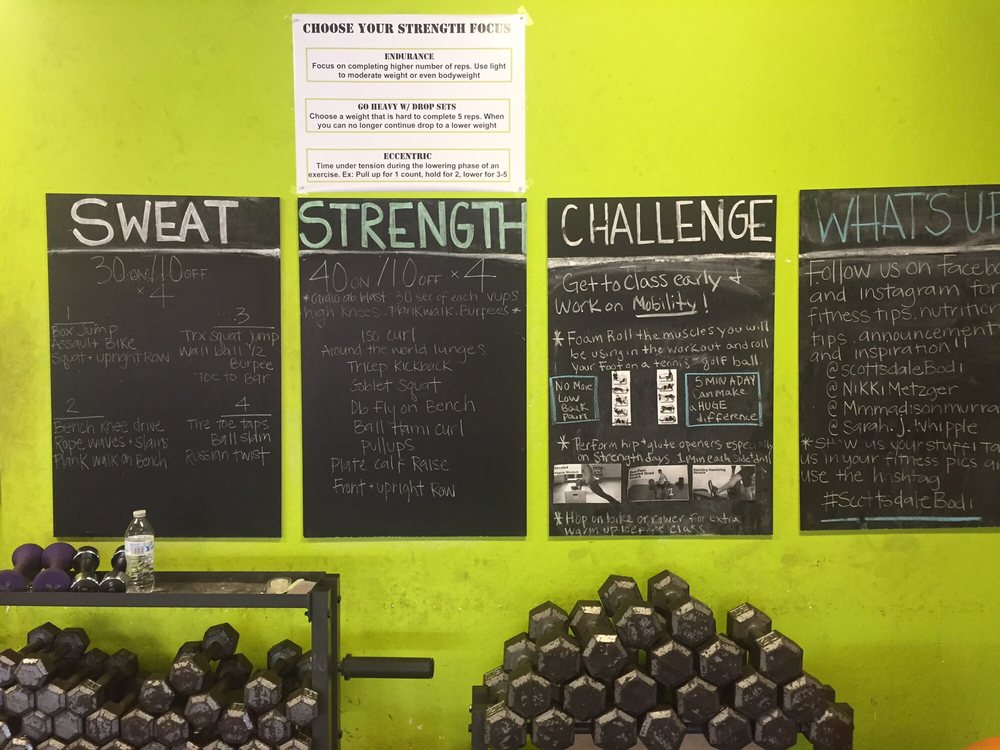 CHOOSE YOUR STRENGTH FOCUS
ENDURANCE
Focus on completing higher number of reps. Use light
to moderate weight or even bodyweight
GO HEAVY W/ DROP SETS
Choose a weight that is hard to complete 5 reps. When
you can no longer continue drop to a lower weight
ECCENTRIC
Time under tension during the lowering phase of an
exercise. Ex: Pull up for 1 count, hold for 2, lower for 3-5
SWEAT
30 ON/10 OFF
× 4
1
Box Jump
Assault Bike
Squat + upright Row
2
Bench knee drive
Rope waves + slams
Plank walk on Bench
3
Trx Squat Jump
Wall ball 1/2
Burpee
Toe to Bar
4
Tire toe taps
Ball slam
Russian twist
STRENGTH
40 ON/10 OFF × 4
*Cardio ab blast 30 sec of each vups
high knees. Plank walk. Burpees*
Iso curl
Around the world lunges
Tricep kickback
Goblet Squat
Db Fly on Bench
Ball Hami curl
Pullups
Plate calf Raise
Front + upright Row
CHALLENGE
Get to Class early +
work on Mobility!
* Foam Roll the muscles you will
be using in the workout and roll
your foot on a tennis + golf ball.
No More
Low
Back
Pain
5 MIN A DAY
Can make
a HUGE
difference
* Perform hip + glute openers especially
on Strength days. 1 min each side
Standing Hamstring
Stretch
* Hop on bike or rower for extra
warm up before class
WHAT'S UP
Follow us on Facebo
and instagram for
fitness tips. nutrition
tips. announcement
and inspiration!!
@scottsdaleBodi
@NiKKi Metzger
@Mmmadisonmurra
@Sarah.J.Whipple
*Show us your stuff! Ta
us in your fitness pics a
use the hashtag
#ScottsdaleBodi